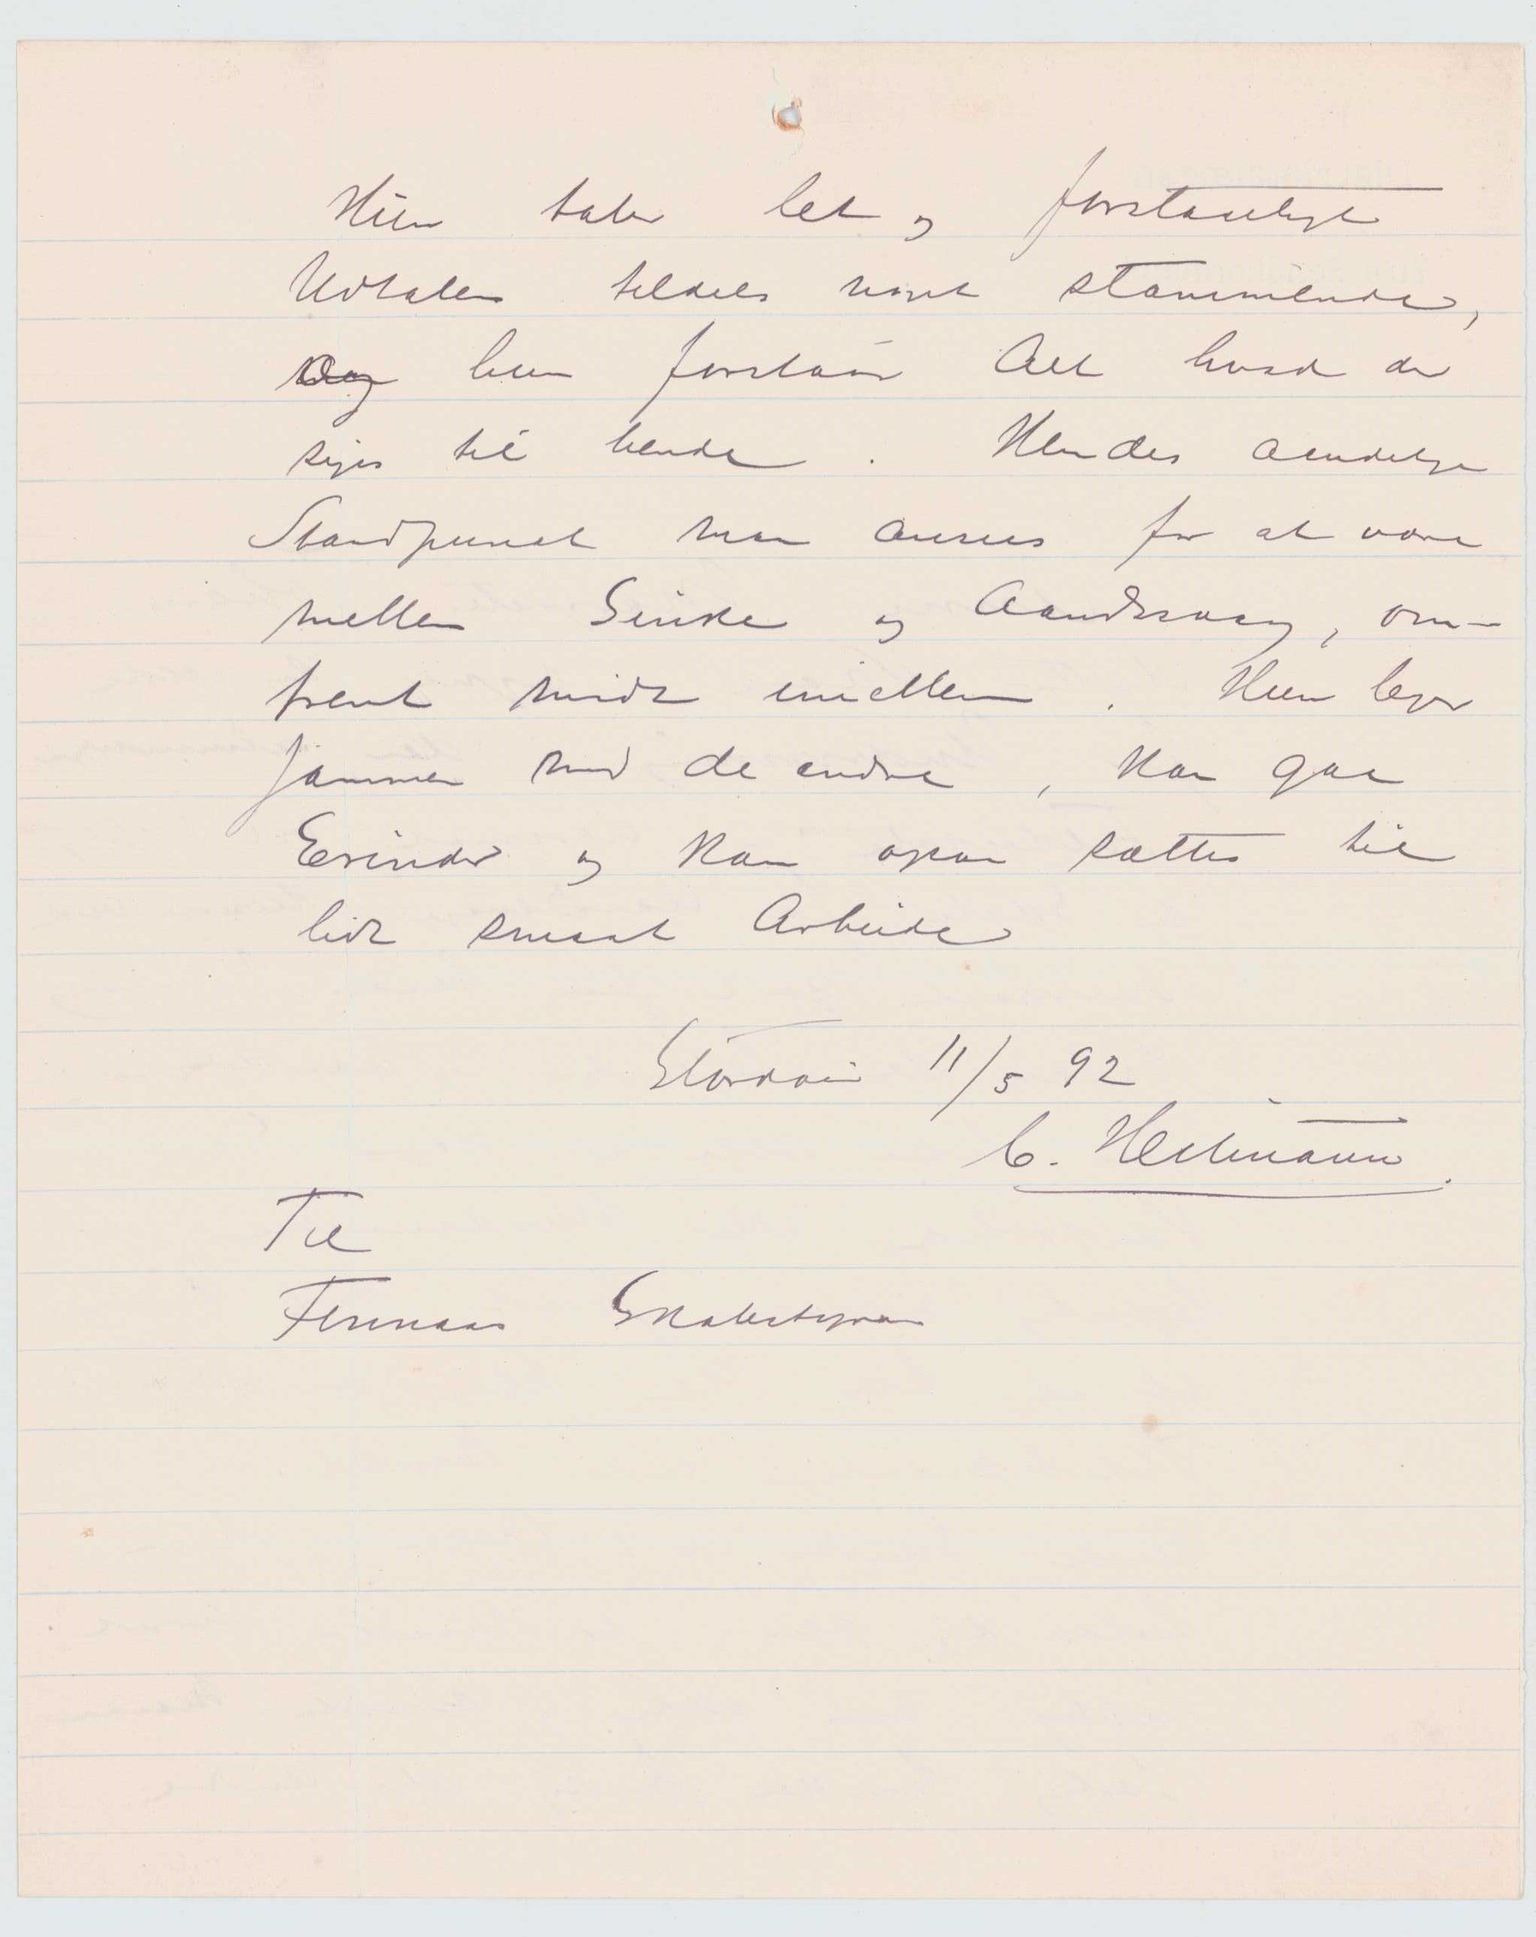 Hun taler let og forstaaeligt
Udtalen tildels noget stammende,
og hun forstaar Alt hvad der
siges til hende. Hendes aandelige
Standpunct maa ansees for at være
mellem Sinke og Aandssvag, om-
trent midt imellem. Hun leger
sammen med de andre, kan gaa
Erinder og kan ogsaa sættes til
lidt smaat Arbeide
Stordøen 11/5 92
C. Heitmann.
Til
Finnaas Skolestyre